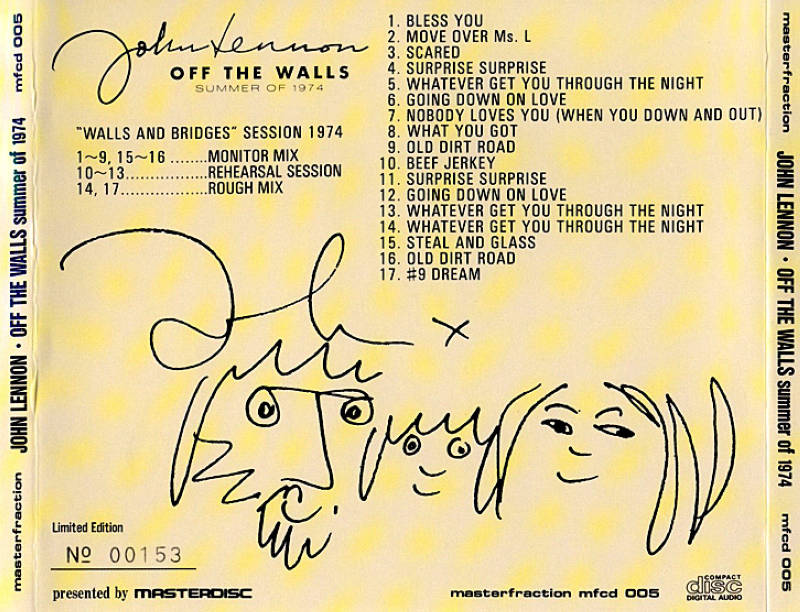 John Lennon
OFF THE WALLS
SUMMER OF 1974
"WALLS AND BRIDGES" SESSION 1974
1~9, 15~16 ........MONITOR MIX
10~13.................REHEARSAL SESSION
14, 17..................ROUGH MIX
1. BLESS YOU
2. MOVE OVER Ms. L
3. SCARED
4. SURPRISE SURPRISE
5. WHATEVER GET YOU THROUGH THE NIGHT
6. GOING DOWN ON LOVE
7. NOBODY LOVES YOU (WHEN YOU DOWN AND OUT)
8. WHAT YOU GOT
9. OLD DIRT ROAD
10. BEEF JERKEY
11. SURPRISE SURPRISE
12. GOING DOWN ON LOVE
13. WHATEVER GET YOU THROUGH THE NIGHT
14. WHATEVER GET YOU THROUGH THE NIGHT
15. STEAL AND GLASS
16. OLD DIRT ROAD
17. #9 DREAM
Limited Edition
Nº 00153
presented by MASTERDISC
masterfraction mfcd 005
COMPACT
disc
DIGITAL AUDIO
masterfraction JOHN LENNON · OFF THE WALLS summer of 1974 mfcd 005
masterfraction JOHN LENNON · OFF THE WALLS summer of 1974 mfcd 005